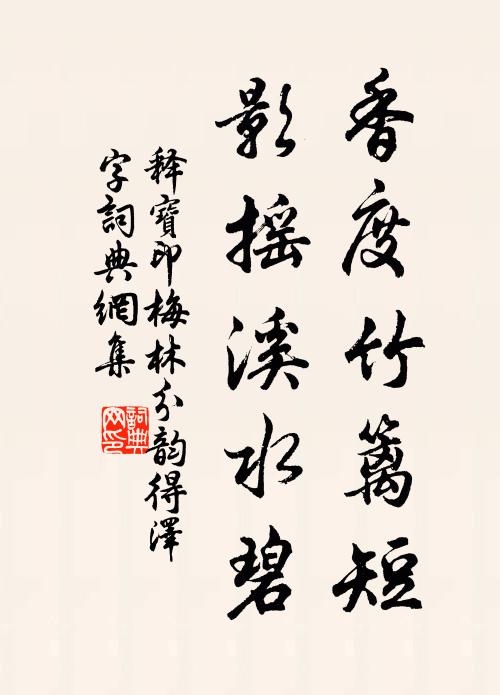 香度竹篱短
影摇溪水碧
释寶印梅林分韵得澤
字詞典網集
詞典网印